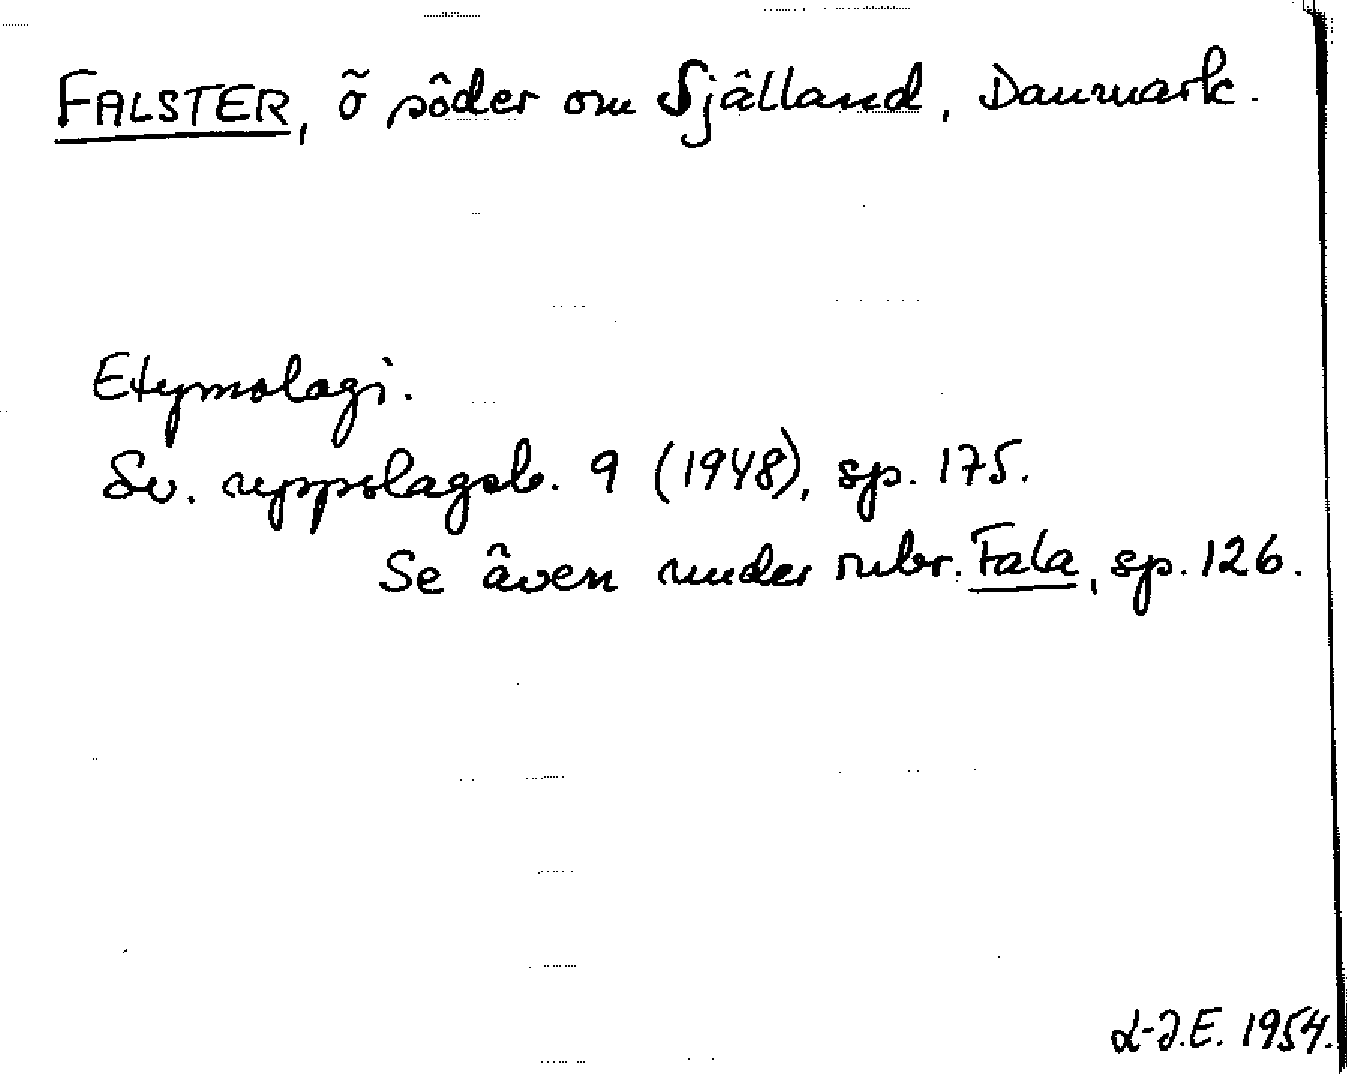 FALSTER, ö söder om Själland, Danmark.
Etymologi.
Sv. uppslagsb. 9 (1948), sp. 175.
Se även under rubr. Fala, sp. 126.
L-J.E. 1954.